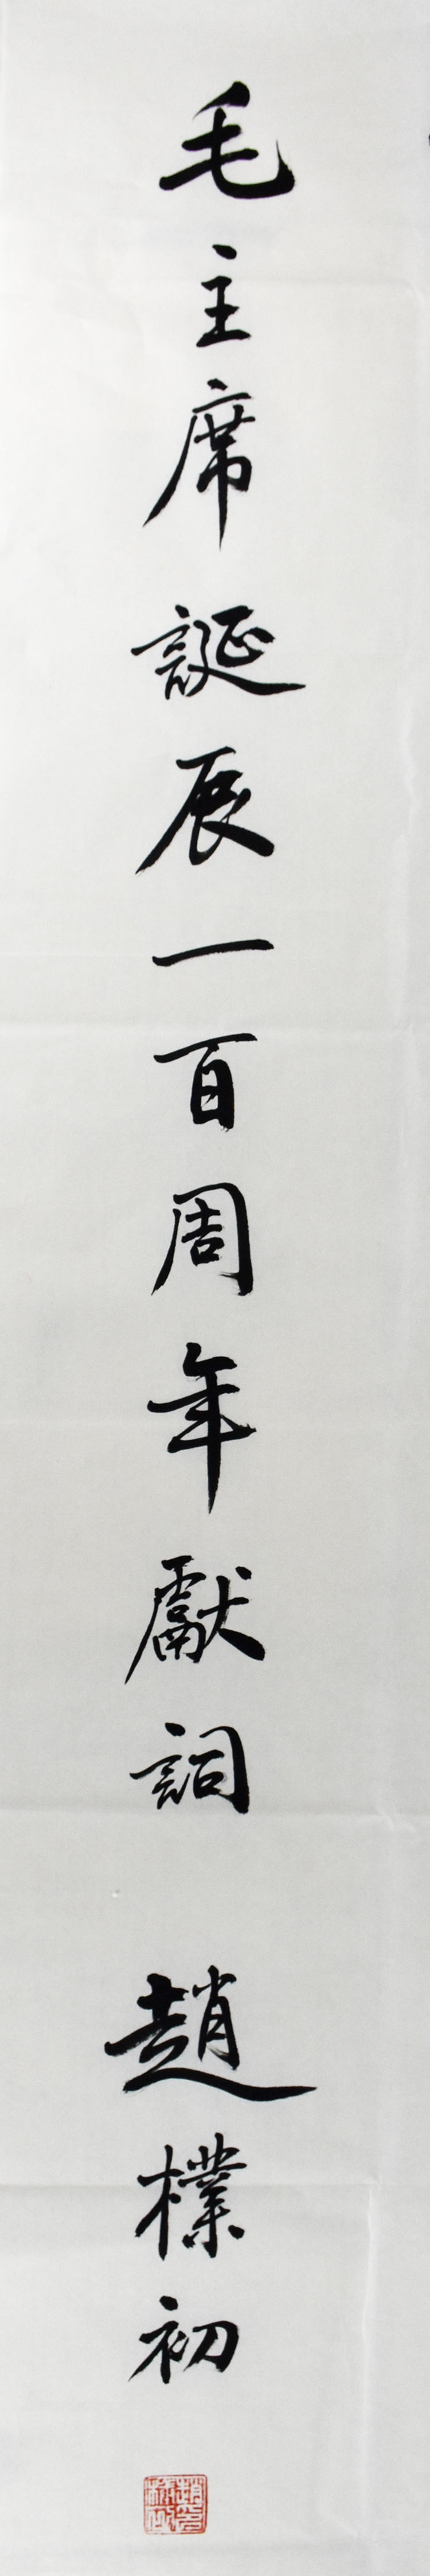 毛主席誕辰一百周年獻詞 趙樸初